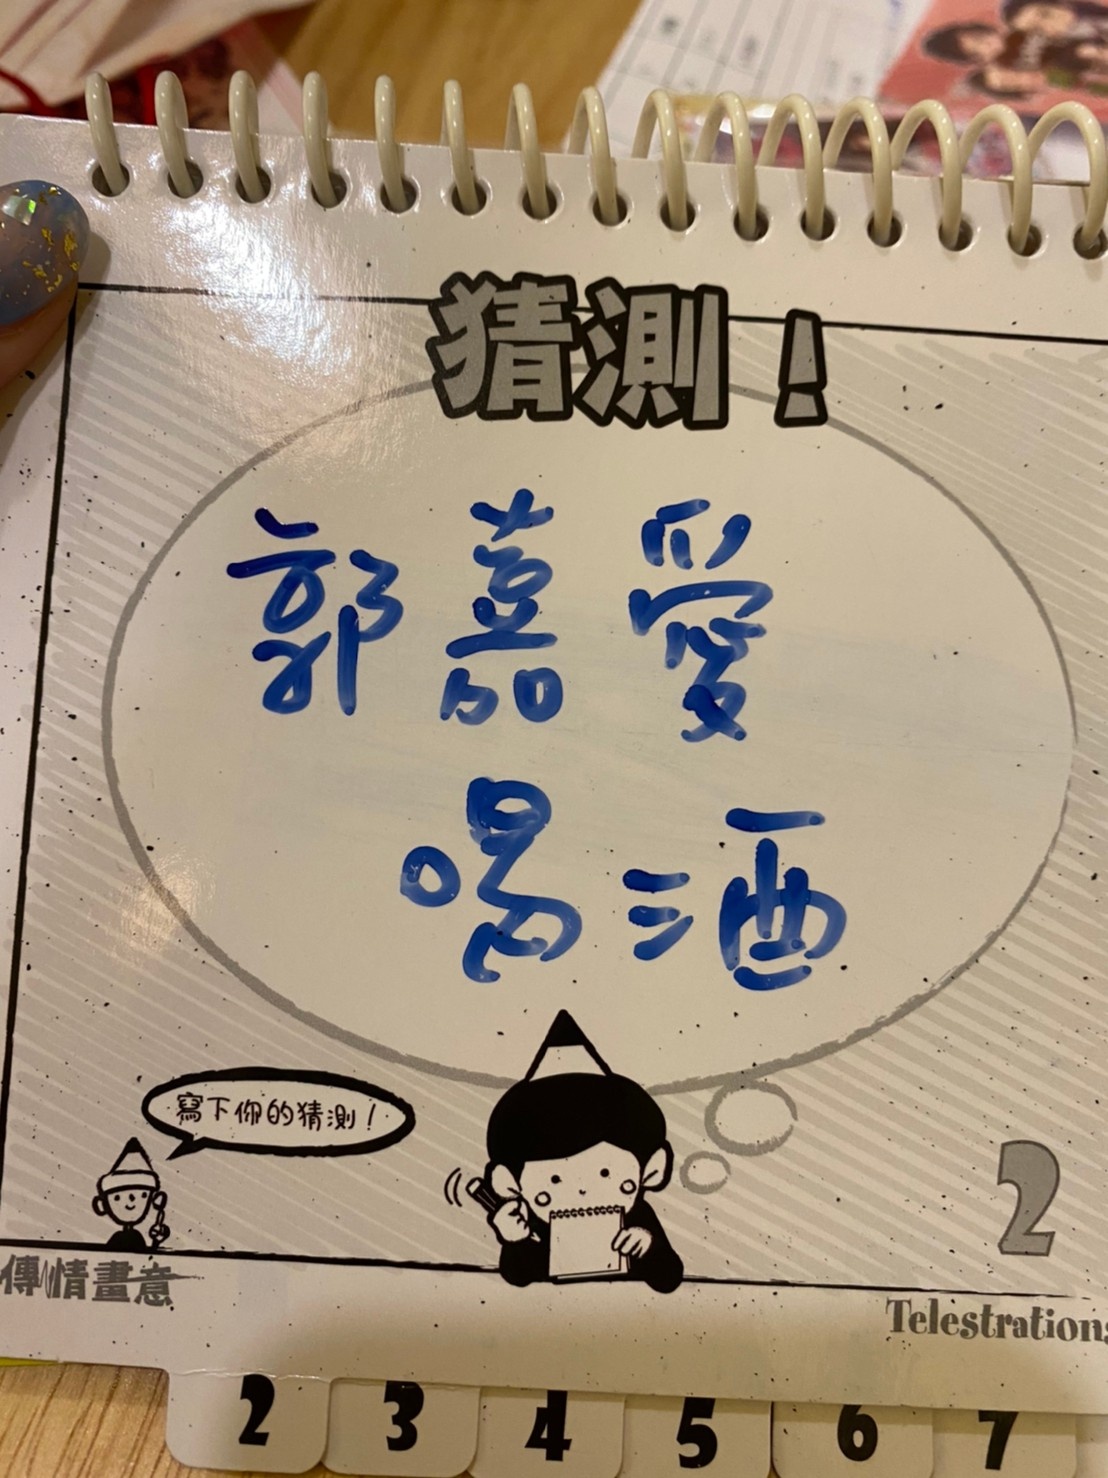 猜測！
郭嘉愛
喝酒
寫下你的猜測！
2
傳情畫意
Telestrations
2 3 4 5 6 7